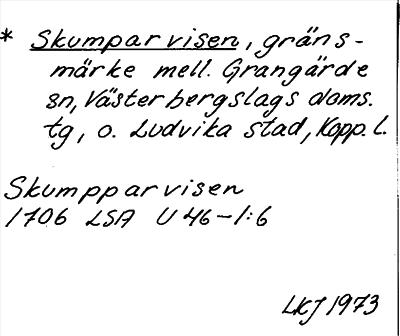 * Skumparvisen, gräns-
märke mell. Grangärde
sn, Västerbergslags doms.
tg, o. Ludvika stad, Kopp. l.
Skumpparvisen
1706 LSA U 46-1:6
LKJ 1973